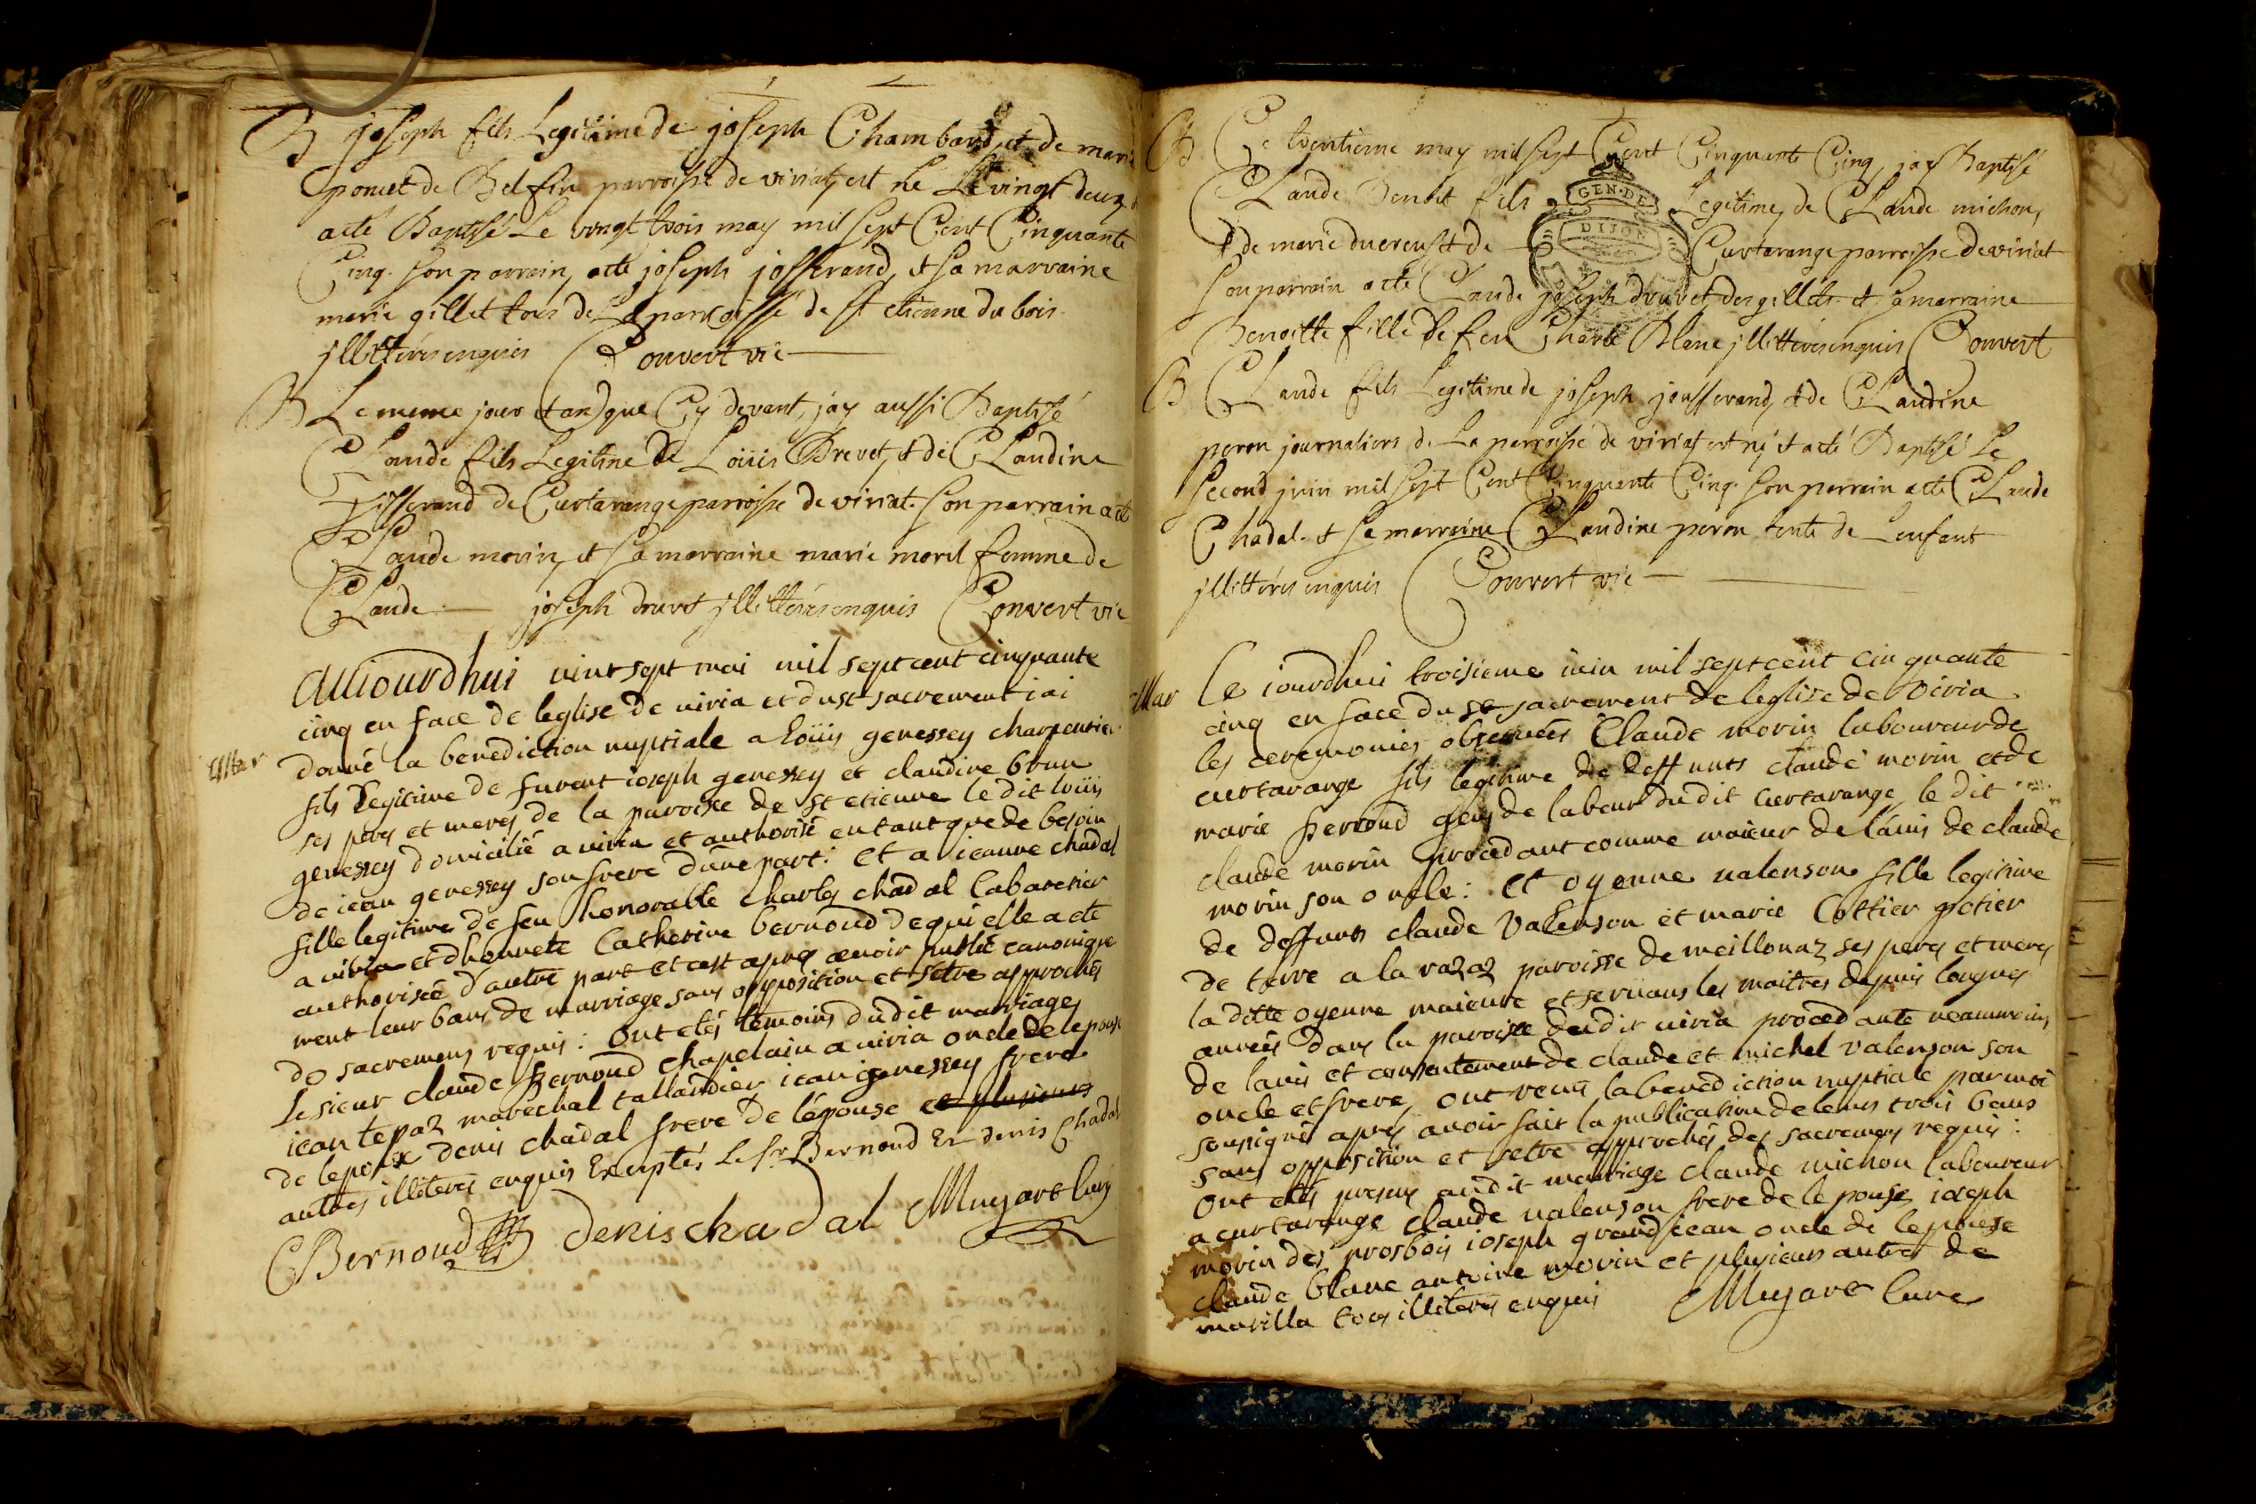 B joseph fils Legitime de joseph Chambard, et de marie
poncet de Belfin parroisse de viriat, est né Le vingt deux
acté Baptisé Le vingt trois may mil sept Cent Cinquante
Cinq. son parrain, acté joseph josserand, et sa marraine
marie gillet tous de La parroisse de st etienne du bois.
jllitterés enquis Convert vic
B Le meme jour et an que Cy devant, jay aussi Baptisé
CLaude fils Legitime de Loüis Brevet, et de CLaudine
josserand de Curtarange parroisse de viriat. son parrain acté
CLaude morin, et sa marraine marie morel femme de
CLaude joseph druvet jllitterés enquis Convert vic
Mar
aujourdhui vint sept mai mil sept cent cinquante
cinq en face de leglise de viria et du st sacrement iai
donné la benediction nuptiale a Loüis genessey charpentier
fils Legitime de furent ioseph genessey et claudine brun
ses peres et meres de la paroisse de st etienne le dit loüis
genessey domicilié a viria et authorisé en tant que de besoin
de iean genessey son frere d'une part: et a ieanne chadal
fille legitime de feu honorable charles chadal Cabaretier
a viria et dhonnete Catherine bernoud de qui elle a ete
authorisée d'autre part et cest apres avoir publié canonique
ment leur bans de marriage sans opposition et setre approchés
do sacremens requis: Ont étés témoins dudit marriage
Le sieur claude bernoud chapelain a viria oncle de lepouse
iean tepaz marechal tallandier iean genessey frere
de lepoux denis chadal frere de lépouse et plusieurs
autres illiteres enquis Exceptés Le sr. Bernoud Et denis Chadal
CBernoud denis chadal Mugart Curé
B Ce trentieme may mil sept Cent Cinquante Cinq, jay Baptisé
CLaude Benoit fils Legitime, de CLaude michon,
GEN. DE
DIJON
et de marie ducreust de Curtarange parroisse de viriat
son parrain acté Claude joseph druvet des gillets. et sa marraine
Benoitte fille de feu Charle Blanc jllitterés enquis Convert
B CLaude fils Legitime de joseph jousserand, et de CLaudine
peron journaliers de La parroisse de viriat est né et acté Baptisé Le
second juin mil sept Cent Cinquante Cinq. son parrain acté CLaude
Chadal. et sa marraine CLaudine peron tente de Lenfant
jllitterés enquis Convert vic
Mar
Ce iourdhui troisieme iuin mil sept cent cinquante
cinq en face du st sacrement de leglise de viria
les ceremonies observées Claude morin laboureur de
curtarange fils legitime de deffunts claude morin et de
marie bernoud gens de labeur dudit curtarange, le dit
claude morin procedant comme maieur de l'auis de claude
morin son oncle: et oyenne valenson fille legitime
de deffunts claude valenson et marie Cottier potier
de terre a la razaz paroisse de meillonaz ses peres et meres
la ditte oyenne maieure et servans les maitres depuis longues
années dans la paroisse dudit viria procedante neanmoins
de lavis et consentement de claude et michel valenson son
oncle et frere, ont reçus la benediction nuptiale par moi
sousigné apres avoir fait la publication de leurs trois bans
sans opposition et setre approchés des sacremens requis:
Ont étés presens audit marriage claude michon laboureur
a curtarange claude valenson frere de lepouse, ioseph
morin des prosbois ioseph grandjean oncle de lepouse
claude blanc antoine morin et plusieurs autres de
marilla tous illiterés enquis Mugart Curé